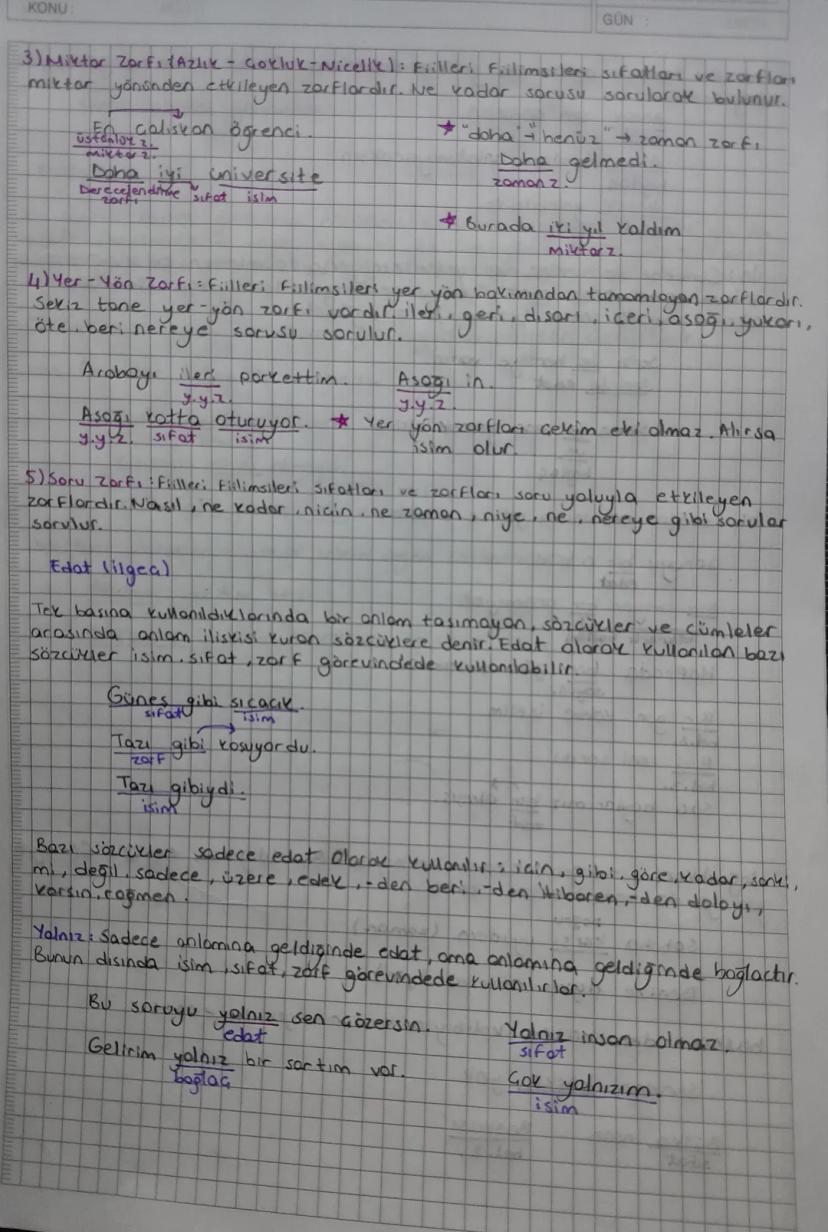 KONU :
GÜN :
3) Miktar Zarfı (Azlık - Çokluk - Nicelik) : Fiilleri Fiilimsileri sıfatları ve zarfları
miktar yönünden etkileyen zarflardır. Ne kadar sorusu sorularak bulunur.
En çalışkan öğrenci.
üstünlük z.
miktar z.
Daha iyi üniversite
Derecelendirme sıfat isim
zarfı
★ "daha" → "henüz" → zaman zarfı
Daha gelmedi.
zaman z.
★ Burada iki yıl kaldım
miktar z.
4) Yer - Yön Zarfı : Fiilleri Fiilimsileri yer yön bakımından tamamlayan zarflardır.
Sekiz tane yer-yön zarfı vardır. ileri, geri, dışarı, içeri, aşağı, yukarı,
öte, beri nereye sorusu sorulur.
Arabayı ileri parkettim. Aşağı in.
y.y.z. y.y.z.
Aşağı katta oturuyor. ★ Yer yön zarfları çekim eki almaz. Alırsa
y.y.z. sıfat isim isim olur.
5) Soru Zarfı : Fiilleri Fiilimsileri sıfatları ve zarfları soru yoluyla etkileyen
zarflardır. Nasıl, ne kadar, niçin, ne zaman, niye, ne, nereye gibi sorular
sorulur.
Edat (ilgeç)
Tek başına kullanıldıklarında bir anlam taşımayan, sözcükler ve cümleler
arasında anlam ilişkisi kuran sözcüklere denir. Edat olarak kullanılan bazı
sözcükler isim, sıfat, zarf görevindede kullanılabilir.
Güneş gibi sıcacık.
sıfat isim
Tazı gibi koşuyordu.
zarf
Tazı gibiydi.
isim
Bazı sözcükler sadece edat olarak kullanılır ; için, gibi, göre, kadar, sanki,
mi, değil, sadece, üzere, edek, -den beri, -den itibaren, -den dolayı,
karşın, rağmen.
Yalnız : Sadece anlamına geldiğinde edat, ama anlamına geldiğinde bağlaçtır.
Bunun dışında isim, sıfat, zarf görevindede kullanılırlar.
Bu soruyu yalnız sen çözersin. Yalnız insan olmaz.
edat sıfat
Gelirim yalnız bir şartım var. Çok yalnızım.
bağlaç isim